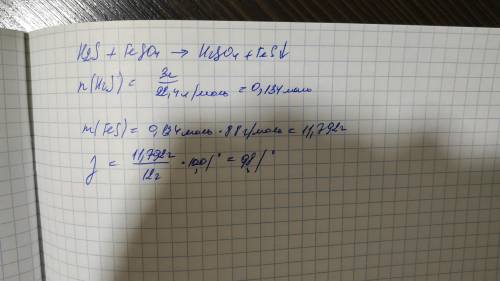 H2S + FeSO4 → H2SO4 + FeS↓
n(H2S) = 3л / 22,4 л/моль = 0,134 моль
m(FeS) = 0,134 моль · 88 г/моль = 11,792г
η = 11,792г / 12г · 100% = 98%